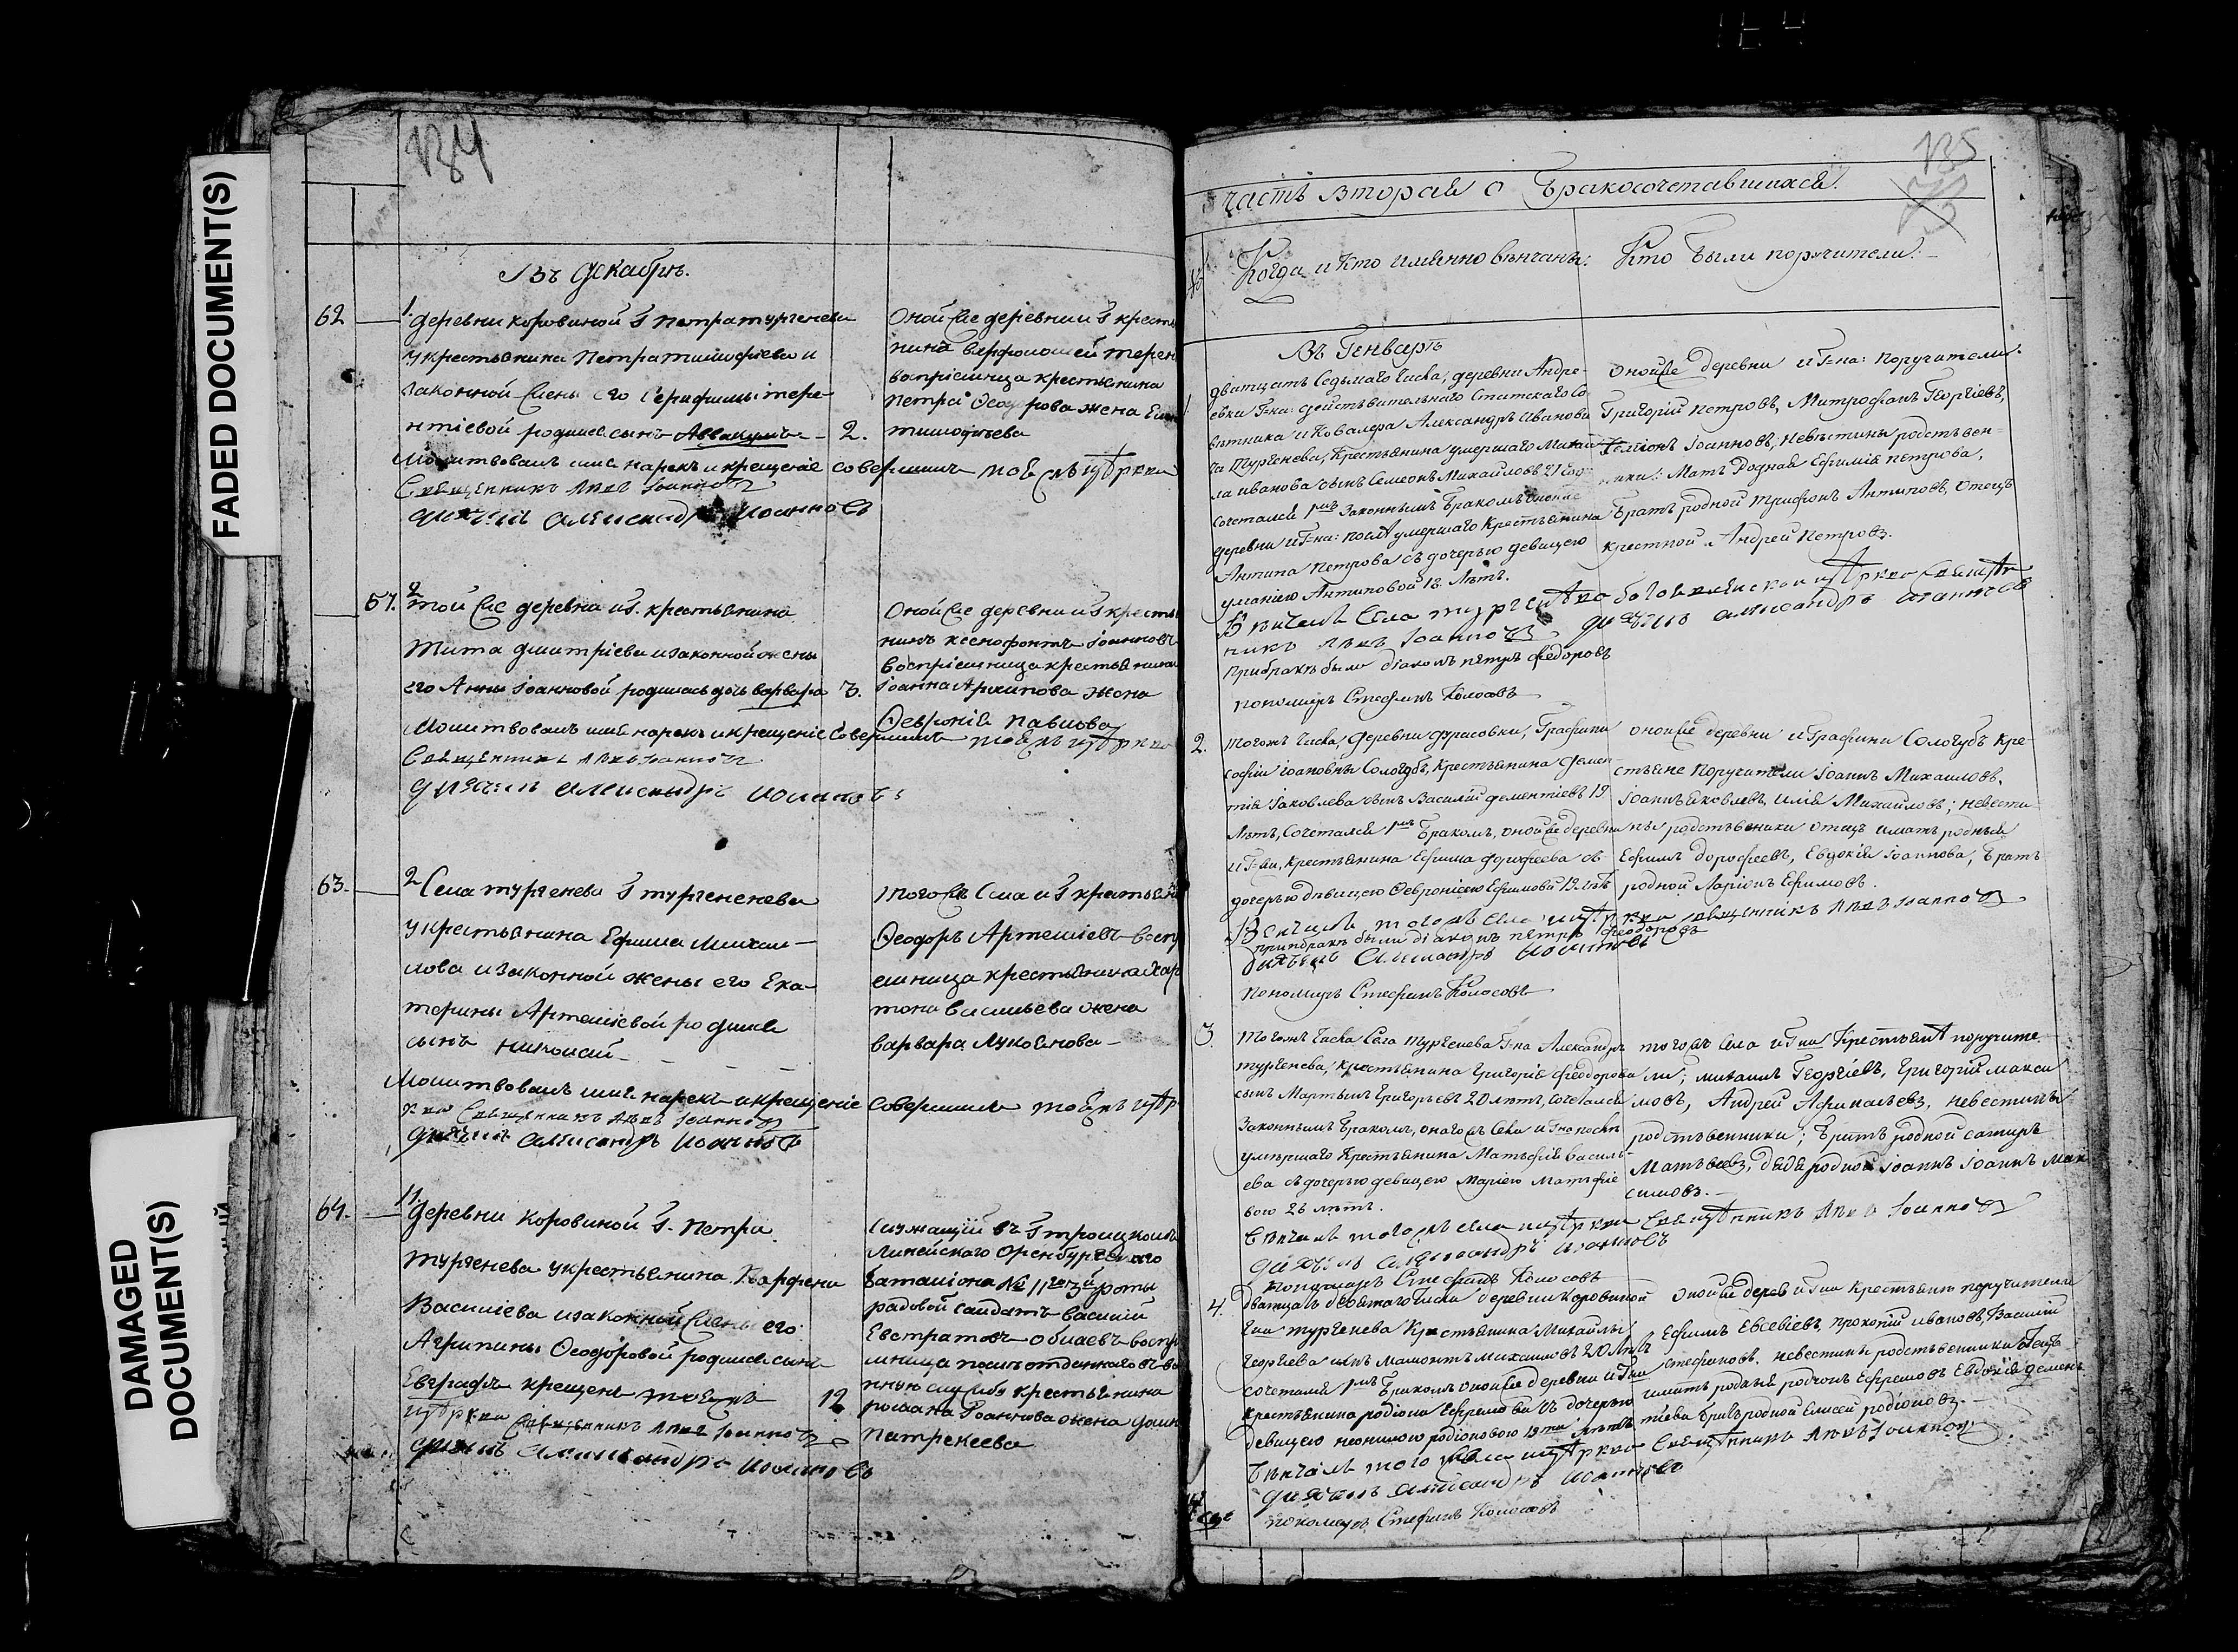 FADED DOCUMENT(S)
DAMAGED
DOCUMENT(S)
134
Въ декабрѣ.
62 1. деревни коровиной Г Петра тургенева
у крестьянина Петра тимофѣева и
законной жены его тере-
нтіевой родился сынъ Аввакумъ 2.
Молитвовалъ имя нарекъ и крещеніе совершилъ тоя жъ церкви
Священникъ Левъ Іоанновъ
дьячекъ Александръ Иоанновъ
Оной же деревни и Г крестья
нинъ терен
воспріемница крестьянина
Петра жена
тимофѣева
57. 2 той же деревни и Г. крестьянина
Тита дмитріева и законной жены
его Анны Іоанновой родилась дочь варвара 3.
Молитвовалъ имя нарекъ и крещеніе совершилъ тоя жъ церкви
Священникъ Левъ Іоанновъ
дьячекъ Александръ Иоанновъ
Оной же деревни и Г крестья
нинъ ксенофонтъ Іоанновъ
воспріемница крестьянина
Іоанна Архипова жена
Ѳевронія павлова
63. 2 Села тургенева Г тургененева
у крестьянина Ефима Михаи-
лова и законной жены его Ека-
терины Артеміевой родился
сынъ николай
Молитвовалъ имя нарекъ и крещеніе совершилъ тоя жъ це
ркви Священникъ Левъ Іоанновъ
дьячекъ Александръ Иоанновъ
того жъ села и Г крестьянинъ
Ѳеодоръ Артеміевъ воспрі
емница крестьянина Хари
тона васильева жена
варвара Лукоянова
64. 11. деревни коровиной Г. Петра
тургенева у крестьянина Парфена
Василіева и законной жены его
Агрипины Ѳеодоровой родился сынъ
Евграфъ крещенъ тоя жъ 12
церкви Священникъ Левъ Іоанновъ
дьячекъ Александръ Иоанновъ
Служащій въ Г троицкомъ
Линейскаго Оренбургскаго
баталіона № 11го 3й роты
рядовой салдатъ василий
Евстратовъ воспрі
емница
службу крестьянина
романа Іоаннова жена
патрекеева
135
часть вторая о бракосочетавшихся.
№ Когда и кто именно вѣнчаны: Кто были поручители:
Въ Генварѣ
1 дватцать Седьмаго числа, деревни Андре-
евки Г-на: дѣйствительнаго Статскаго Со
вѣтника и Ковалера Александръ Иванови
ча Тургенева, Крестьянина умершаго Михаи
ла иванова сынъ Семеонъ Михайловъ 21 год
сочетался 1мъ законнымъ бракомъ
деревни и Г-на: послѣ умершаго Крестьянина
Антипа Петрова съ дочерью девицею
Антиповой 18. Лѣтъ.
Вѣнчалъ Села тургенева церкви Священ
никъ Левъ Іоанновъ дьячекъ Александръ Иоанновъ
при бракѣ былъ діаконъ петръ федоровъ
пономарь Стефанъ Колосовъ
оной же деревни и Г-на: Поручители:
Григорій Петровъ, Митрофанъ Георгіевъ,
Іоанновъ, невѣстины родствен-
ники: Мать родная Ефимія петрова,
братъ родной Трифонъ Антиповъ, Отецъ
крестной Андрей Петровъ.
2. тогожъ числа, деревни Графини
Софіи Іоановны Сологубъ, крестьянина Демен-
тія Іаковлева сынъ Василій дементіевъ 19
Лѣтъ, Сочетался 1мъ бракомъ, оной же деревни
и Г-жи, крестьянина Ефима дорофеева съ
дочерью дѣвицею Ѳеврониею Ефимовой 19. лѣтъ
Вѣнчалъ тогожъ села церкви священникъ Левъ Іоанновъ
при бракѣ были діаконъ петръ феодоровъ
дьячекъ Александръ Иоанновъ
пономарь Стефанъ Колосовъ
оной же деревни и Графини Сологубъ кре-
стьяне Поручители Іоаннъ Михаиловъ,
Іоаннъ яковлевъ, илія Михайловъ; невести-
ны родственики отецъ и мать родныя
Ефимъ дорофеевъ, Евдокія Іоаннова, братъ
родной Ларіонъ Ефимовъ.
3. тогожъ числа Села Тургенева Г-на Александръ
тургенева, крестьянина Григорія феодорова
сынъ Мартынъ Григорьевъ 20 лѣтъ, сочетался
законнымъ бракомъ, онаго жъ села и Г-на послѣ
умершаго крестьянина Матвѣя василь-
ева съ дочерью девицею Маріею Матвѣе
вою 26 лѣтъ.
Вѣнчалъ того жъ села церкви Священникъ Левъ Іоанновъ
дьячекъ Александръ Иоанновъ
пономарь Стефанъ Колосовъ
того жъ села и Г-на Крестьяня поручите-
ли; михаилъ Георгіевъ, Григорій макси
мовъ, Андрей невестины
родственники; братъ родной
Матвеевъ, дядя родной Іоаннъ Іоаннъ Мак
симовъ.
4. двацать деватаго числа деревни коровиной
Г-на тургенева крестьянина Михаилы
Георгіева сынъ Мамонтъ михаиловъ 20 лѣтъ
сочетался 1мъ бракомъ оной же деревни и Г-на
крестьянина родіона Ефремова съ дочерью
девицею неонилою родіоновою 19ти лѣтъ
Вѣнчалъ того жъ села церкви Священникъ Левъ Іоанновъ
дьячекъ Александръ Иоанновъ
пономарь Стефанъ Колосовъ
оной же дерев и Г-на Крестьяня поручители
Ефимъ Евсевіевъ, прокопій ивановъ, Василій
стефановъ. невестины родственники отецъ
и мать родныя родіонъ Ефремовъ Евдокія демен
тіева братъ родной Елисей родіоновъ.